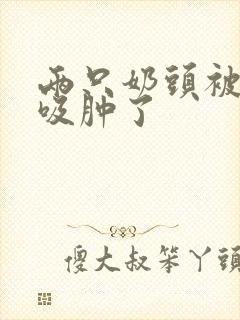 兩只奶頭被
吸肿了
傻大叔笨丫頭